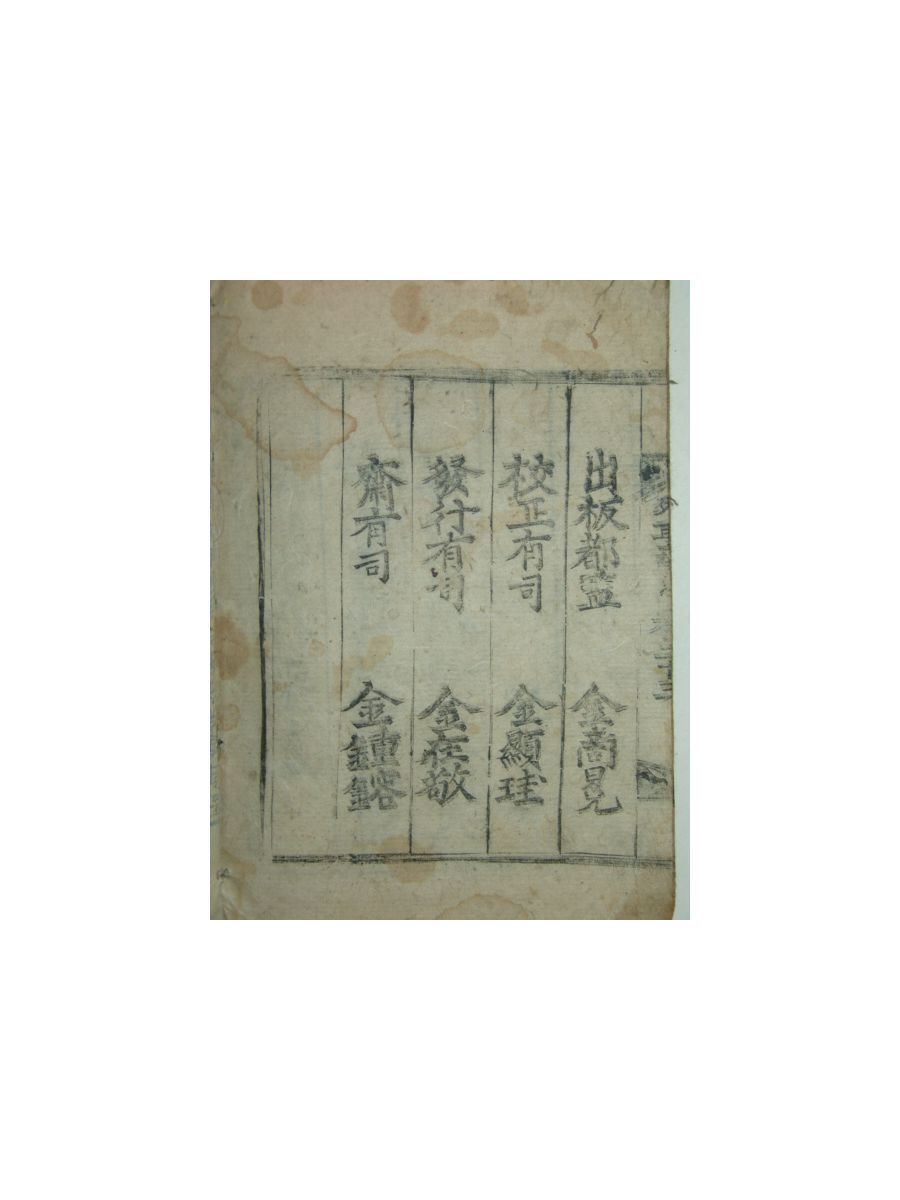 出板都監 金商冕
校正有司 金顯珪
發行有司 金在敬
齋有司 金鍾鎔